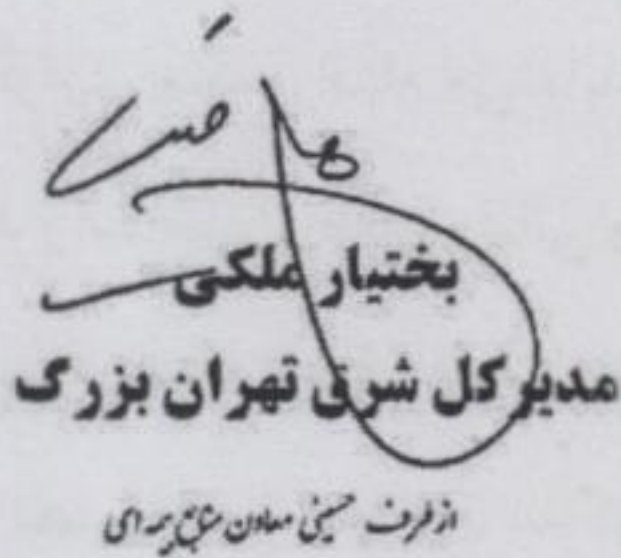 بختیار ملکی
مدیر کل شرق تهران بزرگ
از طرف حسینی معاون منابع بیمه ای